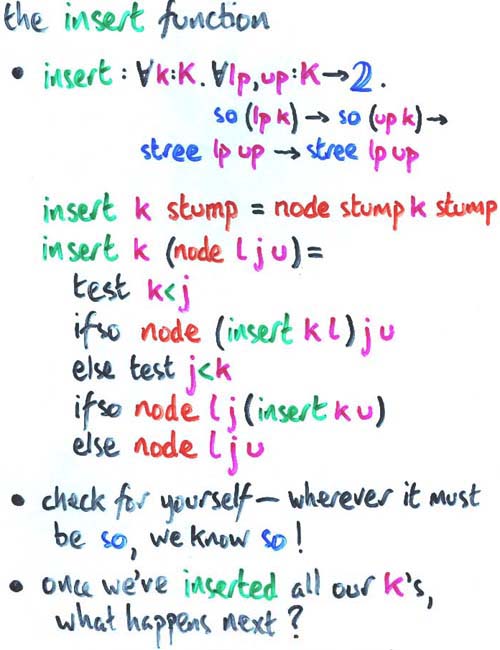 the insert function
• insert : ∀k:K. ∀lp,up:K→2.
so (lp k) → so (up k) →
stree lp up → stree lp up
insert k stump = node stump k stump
insert k (node l j u) =
test k<j
ifso node (insert k l) j u
else test j<k
ifso node l j (insert k u)
else node l j u
• check for yourself — wherever it must
be so, we know so!
• once we've inserted all our k's,
what happens next?